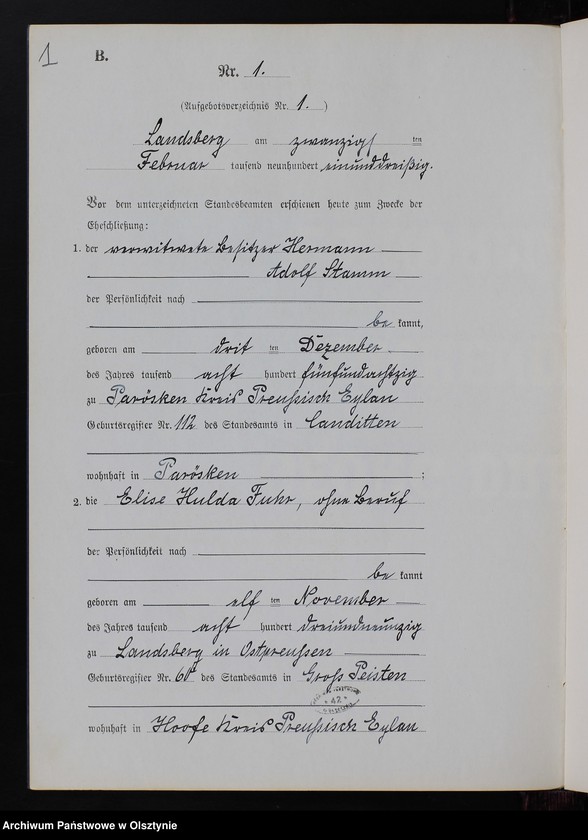 1
B.
Nr. 1.
(Aufgebotsverzeichnis Nr. 1.)
Landsberg am zwanzig ten
Februar tausend neunhundert einunddreißig.
Vor dem unterzeichneten Standesbeamten erschienen heute zum Zwecke der
Eheschließung:
1. der verwitwete Besitzer Hermann
Adolf Stamm
der Persönlichkeit nach
be kannt,
geboren am drit ten Dezember
des Jahres tausend acht hundert fünfundachtzig
zu Parösken Kreis Preußisch Eylau
Geburtsregister Nr. 112 des Standesamts in Canditten
wohnhaft in Parösken ;
2. die Elise Hulda Fuhr, ohne Beruf
der Persönlichkeit nach
be kannt
geboren am elf ten November
des Jahres tausend acht hundert dreiundneunzig
zu Landsberg in Ostpreußen
Geburtsregister Nr. 60 des Standesamts in Gross Peisten
* 42 *
wohnhaft in Hoofe Kreis Preußisch Eylau
Archiwum Państwowe w Olsztynie